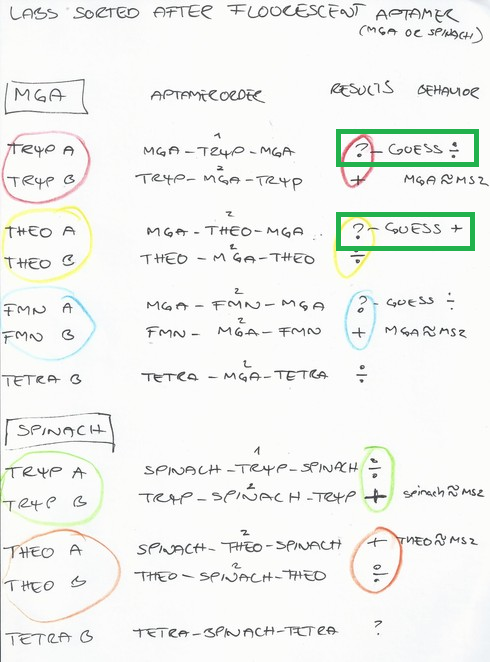 LABS SORTED AFTER FLUORESCENT APTAMER
(MGA OR SPINACH)
MGA APTAMERORDER RESULTS BEHAVIOR
1
TRYP A MGA - TRYP - MGA ? - GUESS ÷
2
TRYP B TRYP - MGA - TRYP + MGA≈MS2
2
THEO A MGA - THEO - MGA ? - GUESS +
2
THEO B THEO - MGA - THEO ÷
2
FMN A MGA - FMN - MGA ? - GUESS ÷
2
FMN B FMN - MGA - FMN + MGA≈MS2
2
TETRA B TETRA - MGA - TETRA ÷
SPINACH
1
TRYP A SPINACH - TRYP - SPINACH ÷
2
TRYP B TRYP - SPINACH - TRYP + spinach≈MS2
2
THEO A SPINACH - THEO - SPINACH + THEO≈MS2
2
THEO B THEO - SPINACH - THEO ÷
TETRA B TETRA - SPINACH - TETRA ?